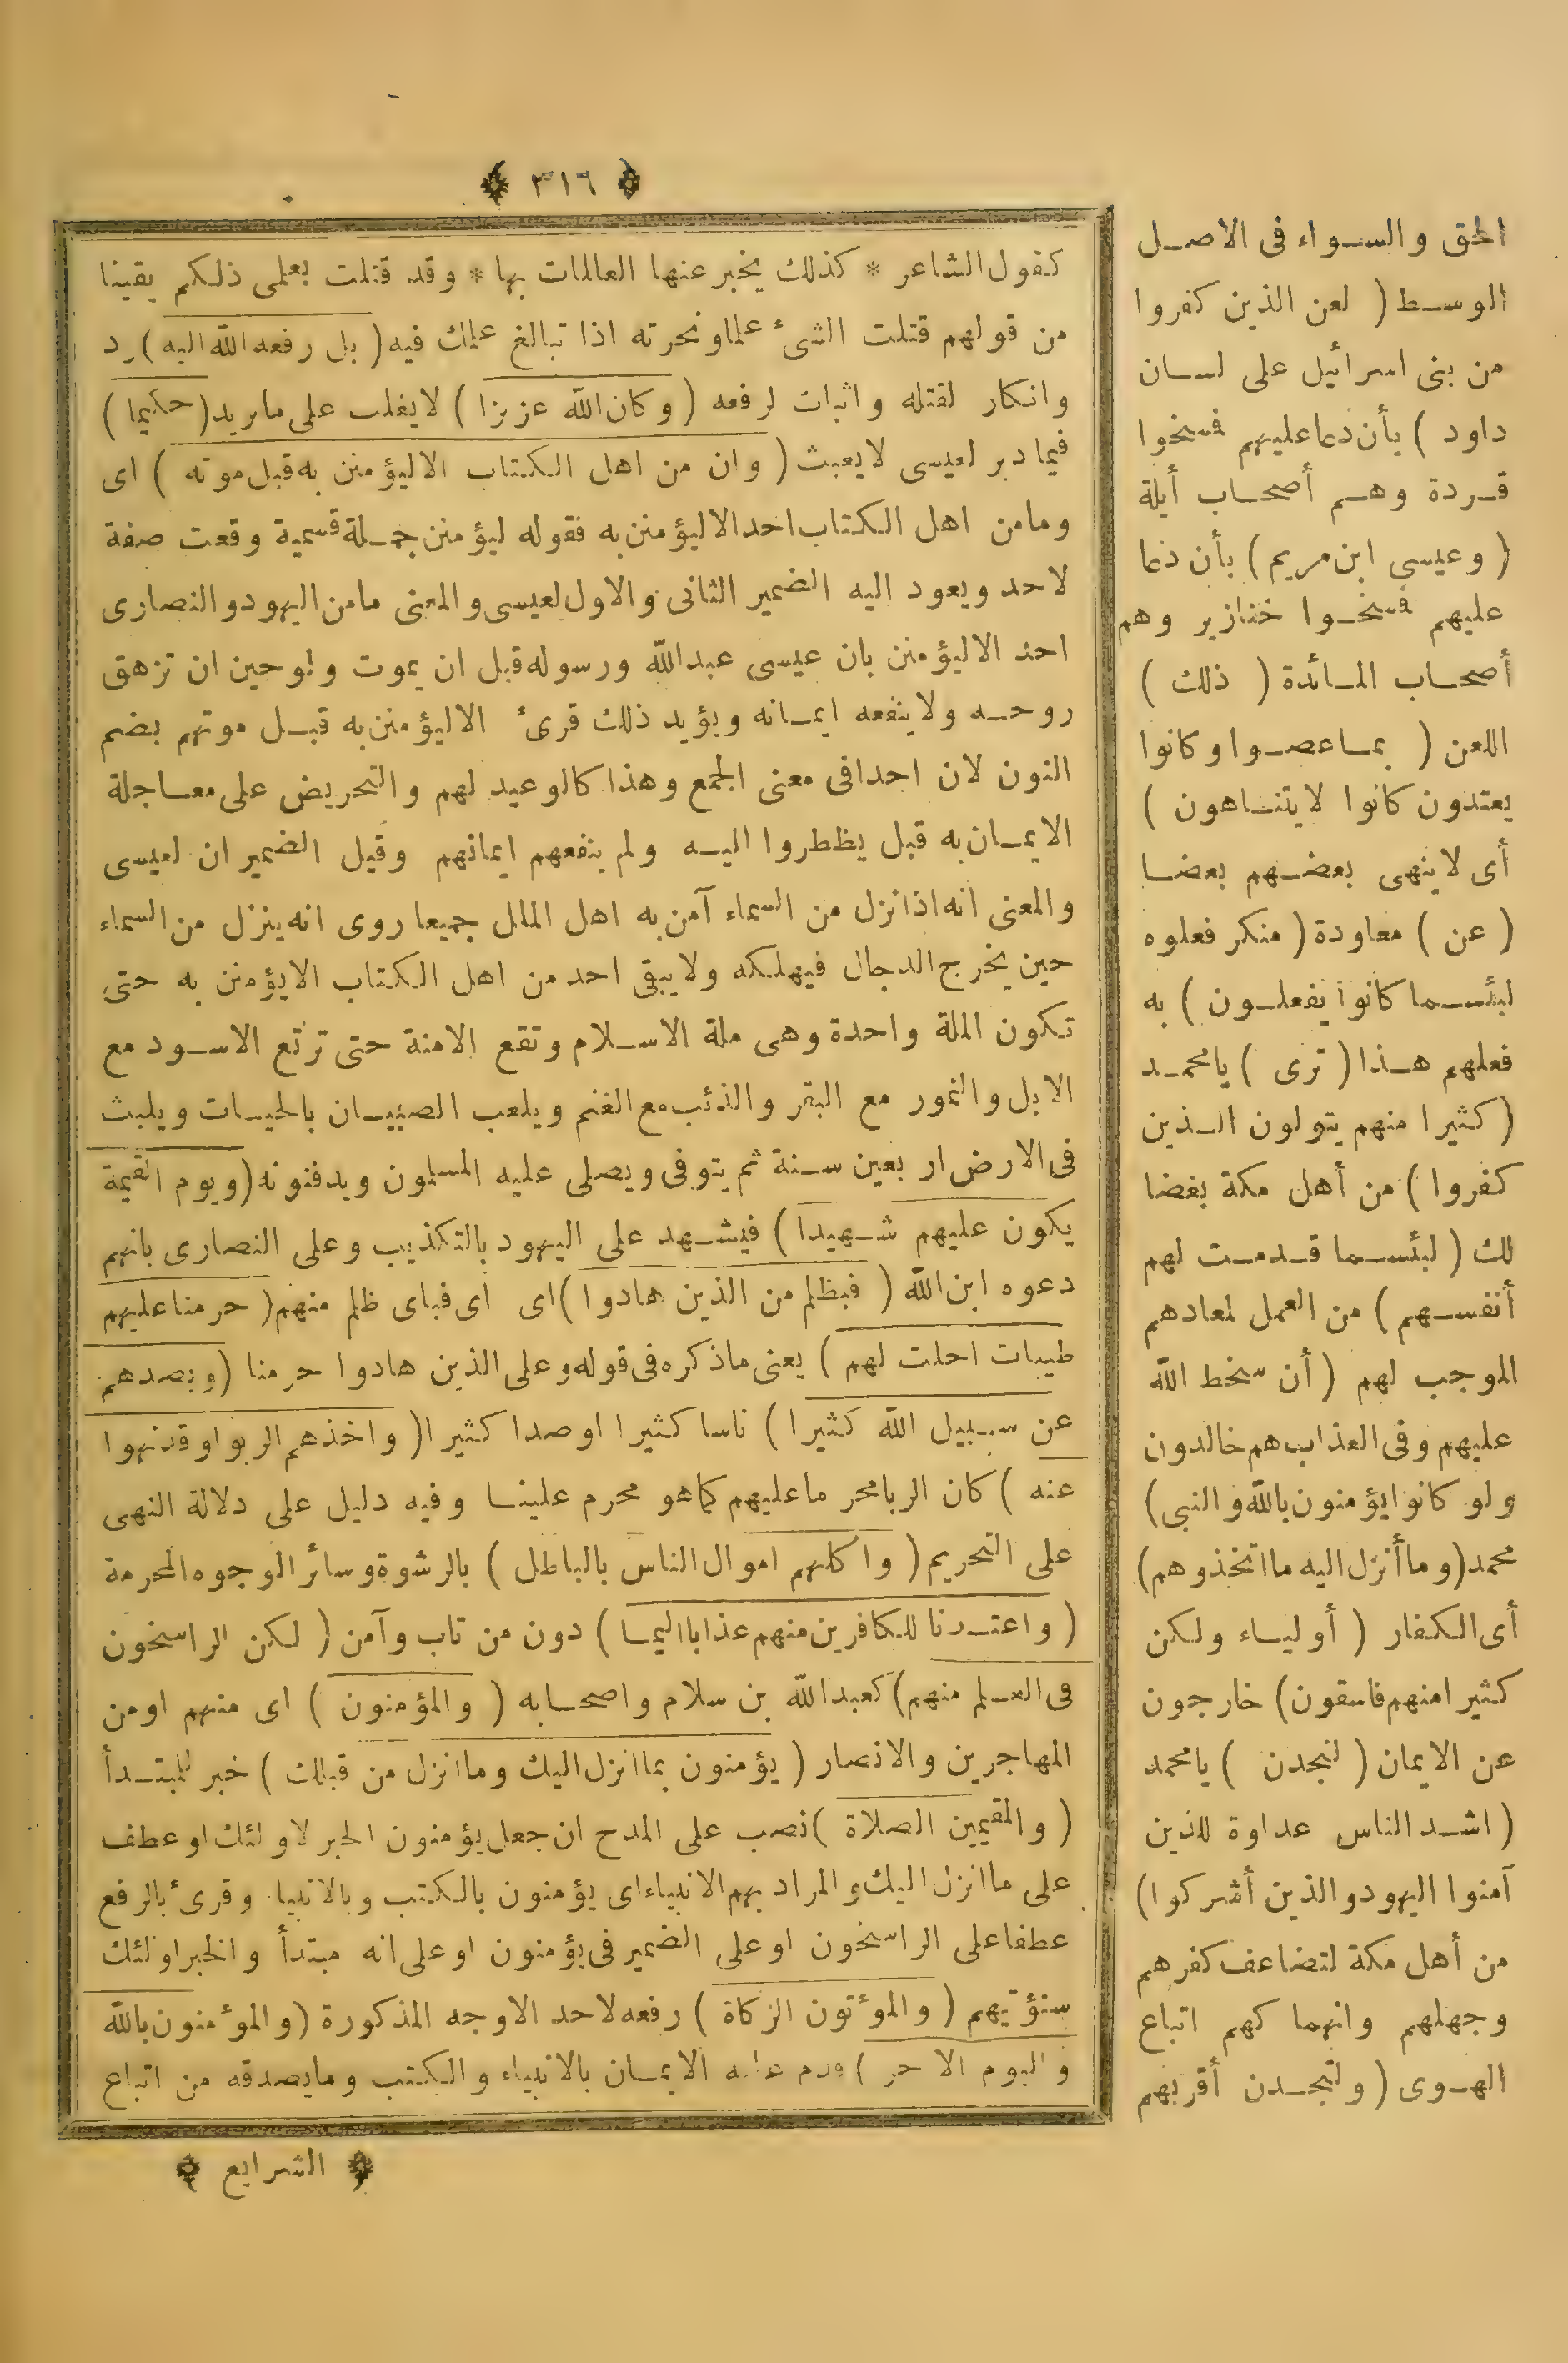 ﴿ ٣١٦ ﴾
كقول الشاعر * كذلك يخبر عنها العالمات بها * وقد قتلت بعلمى ذلكم يقينا
من قولهم قتلت الشئ علما ونحرته اذا تبالغ علمك فيه ( بل رفعه الله اليه ) رد
وانكار لقتله واثبات لرفعه ( وكان الله عزيزا ) لايغلب على مايريد ( حكيما )
فيما دبر لعيسى لايعبث ( وان من اهل الكتاب الا ليؤمنن به قبل موته ) اى
ومامن اهل الكتاب احد الا ليؤمنن به فقوله ليؤمنن جملة قسمية وقعت صفة
لاحد ويعود اليه الضمير الثانى والاول لعيسى والمعنى مامن اليهود والنصارى
احد الا ليؤمنن بان عيسى عبدالله ورسوله قبل ان يموت ولو حين ان تزهق
روحه ولا ينفعه ايمانه ويؤيد ذلك قرئ الا ليؤمنن به قبل موتهم بضم
النون لان احدا فى معنى الجمع وهذا كالوعيد لهم والتحريض على معاجلة
الايمان به قبل يظطروا اليه ولم ينفعهم ايمانهم وقيل الضمير ان لعيسى
والمعنى انه اذا نزل من السماء آمن به اهل الملل جميعا روى انه ينزل من السماء
حين يخرج الدجال فيهلكه ولا يبقى احد من اهل الكتاب الا يؤمنن به حتى
تكون الملة واحدة وهى ملة الاسلام وتقع الامنة حتى ترتع الاسود مع
الابل والنمور مع البقر والذئب مع الغنم ويلعب الصبيان بالحيات ويلبث
فى الارض اربعين سنة ثم يتوفى ويصلى عليه المسلمون ويدفنونه ( ويوم القيمة
يكون عليهم شهيدا ) فيشهد على اليهود بالتكذيب وعلى النصارى بانهم
دعوه ابن الله ( فبظلم من الذين هادوا ) اى اى فباى ظلم منهم ( حرمنا عليهم
طيبات احلت لهم ) يعنى ماذكره فى قوله وعلى الذين هادوا حرمنا ( وبصدهم
عن سبيل الله كثيرا ) ناسا كثيرا اوصدا كثيرا ( واخذهم الربوا وقدنهوا
عنه ) كان الربا محرما عليهم كما هو محرم علينا وفيه دليل على دلالة النهى
على التحريم ( واكلهم اموال الناس بالباطل ) بالرشوة وسائر الوجوه المحرمة
( واعتدنا للكافرين منهم عذابا اليما ) دون من تاب وآمن ( لكن الراسخون
فى العلم منهم ) كعبدالله بن سلام واصحابه ( والمؤمنون ) اى منهم اومن
المهاجرين والانصار ( يؤمنون بما انزل اليك وما انزل من قبلك ) خبر للمبتدأ
( والمقيمين الصلاة ) نصب على المدح ان جعل يؤمنون الخبر لاولئك اوعطف
على ما انزل اليك والمراد بهم الانبياء اى يؤمنون بالكتب وبالانبيا وقرئ بالرفع
عطفا على الراسخون اوعلى الضمير فى يؤمنون اوعلى انه مبتدأ والخبر اولئك
سنؤتيهم ( والموٴتون الزكاة ) رفعه لاحد الاوجه المذكورة ( والموٴمنون بالله
واليوم الآخر ) قدم عليه الايمان بالانبياء والكتب ومايصدقه من اتباع
﴿ الشرايع ﴾
الحق والسواء فى الاصل
الوسط ( لعن الذين كفروا
من بنى اسرائيل على لسان
داود ) بأن دعا عليهم فمسخوا
قردة وهم أصحاب أيلة
( وعيسى ابن مريم ) بأن دعا
عليهم فمسخوا خنازير وهم
أصحاب المائدة ( ذلك )
اللعن ( بما عصوا وكانوا
يعتدون كانوا لايتناهون )
أى لاينهى بعضهم بعضا
( عن ) معاودة ( منكر فعلوه
لبئسما كانوا يفعلون ) به
فعلهم هذا ( ترى ) يامحمد
( كثيرا منهم يتولون الذين
كفروا ) من أهل مكة بغضا
لك ( لبئسما قدمت لهم
أنفسهم ) من العمل لمعادهم
الموجب لهم ( أن سخط الله
عليهم وفى العذاب هم خالدون
ولو كانوا يؤمنون بالله والنبى )
محمد ( وما أنزل اليه ما اتخذوهم )
أى الكفار ( أولياء ولكن
كثيرا منهم فاسقون ) خارجون
عن الايمان ( لتجدن ) يامحمد
( اشد الناس عداوة للذين
آمنوا اليهود والذين أشركوا )
من أهل مكة لتضاعف كفرهم
وجهلهم وانهماكهم اتباع
الهوى ( ولتجدن أقربهم